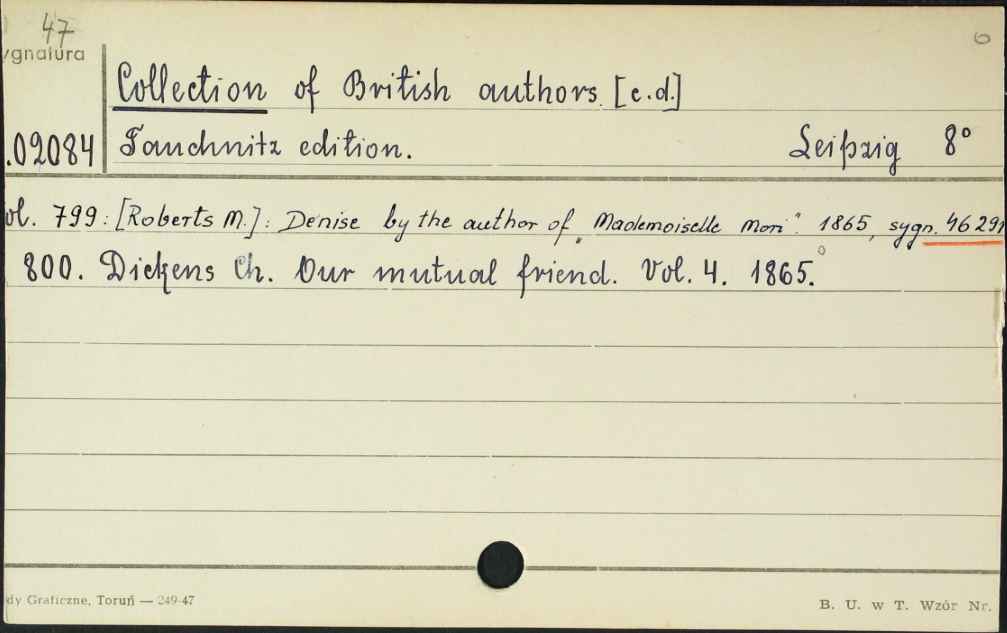 47
6
ygnatura
Collection of British authors. [c.d.]
.02084 Tauchnitz edition. Leipzig 8°
ol. 799: [Roberts M.]: Denise by the author of „Mademoiselle Mori". 1865, sygn. 46291
800. Dickens Ch. Our mutual friend. Vol. 4. 1865.°
dy Graficzne, Toruń — 249-47
B. U. w T. Wzór Nr.